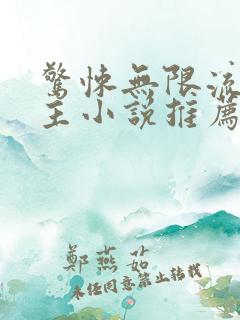 驚悚無限流
主小說推薦
鄭燕茹
未經同意禁止轉載